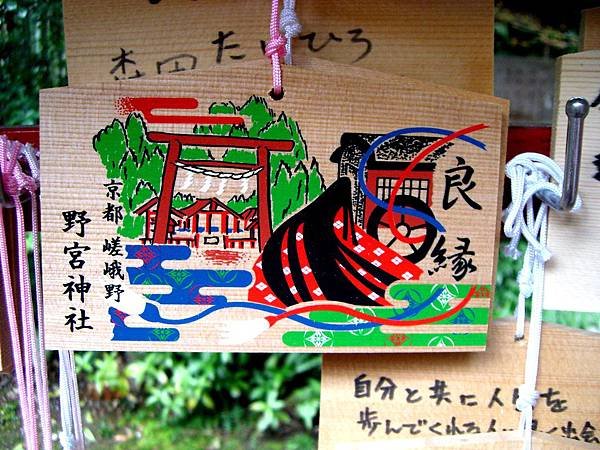 森田たかひろ
良縁
京都 嵯峨野
野宮神社
自分と共に人生を
歩んでくれる人